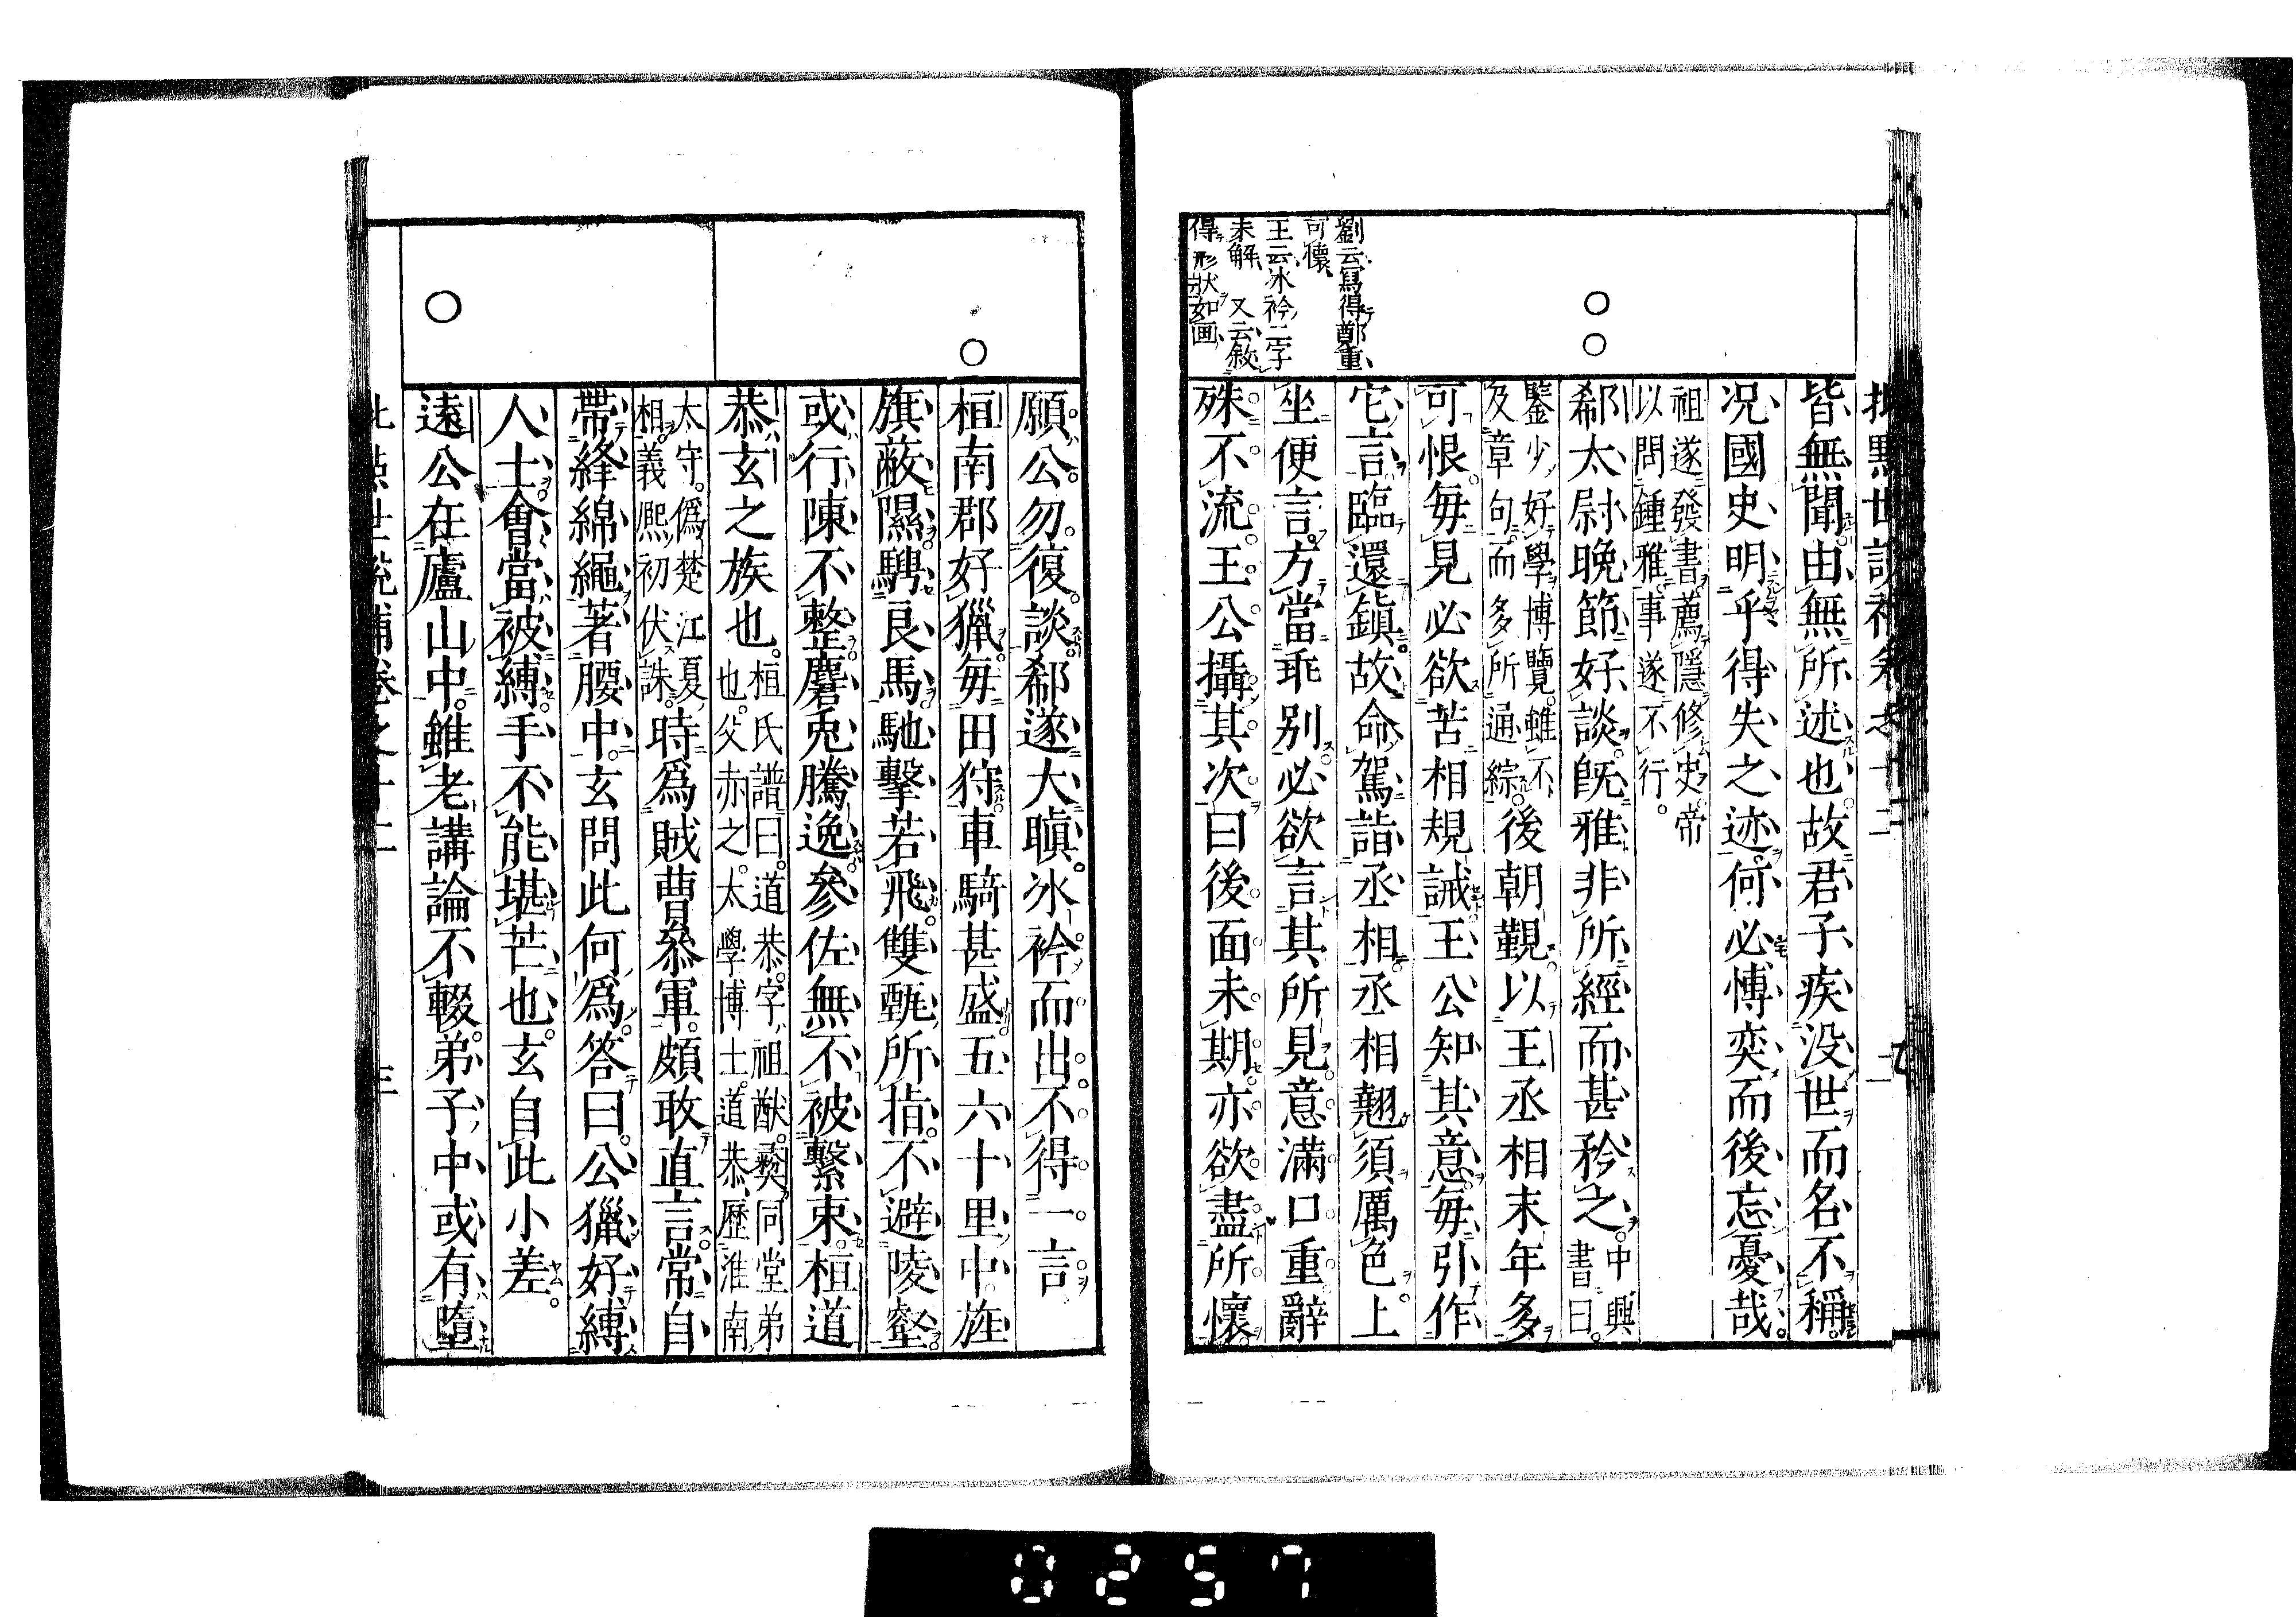 皆無聞由無所述也故君子疾没世而名不稱
况國史明乎得失之迹何必愽奕而後忘憂哉
祖遂發書薦隱修史帝
以問鍾雅事遂不行。
郗太尉晩節好談既雅非所經而甚矜之。中興
書曰。
鑒少好學博覽。雖不
及章句。而多所通綜。後朝覲以王丞相末年多
可恨。毎見必欲苦相規誡王公知其意毎引作
它言臨還鎮。故命駕詣丞相丞相翹須厲色。上
坐便言。方當乖别必欲言其所見。意滿口重辭
殊不流王公攝其次曰後面未期。亦欲盡所懷。
劉云寫得鄭重
可懷
王云冰衿二字
未解 又云敘
得形狀如画
願公勿復談郗遂大瞋。冰衿而出不得一言
桓南郡好獵。毎田狩車騎甚盛五六十里中。旌
旗蔽隰騁良馬馳擊若飛。雙甄所指。不避陵壑
或行陳不整麏兎騰逸參佐無不被繫束。桓道
恭玄之族也。桓氏譜曰。道恭。字祖猷。彛同堂弟
也。父赤之。太學博士。道恭歷淮南
太守。僞楚江夏
相。義熈初伏誅。時爲賊曹叅軍。頗敢直言常自
帶絳綿繩著腰中。玄問此何爲。答曰。公獵好縛
人士會當被縛。手不能堪芒也。玄自此小差。
遠公在廬山中。雖老講論不輟。弟子中或有墮